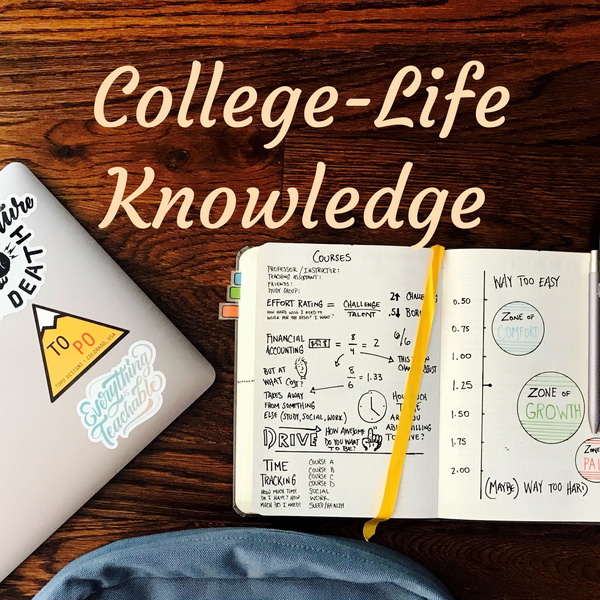 College-Life
Knowledge
DEATH
TO PO
TOPO DESIGNS · COLORADO, USA
Everything
is
Teachable
COURSES
PROFESSOR / INSTRUCTOR:
TEACHING ASSISTANT:
FRIENDS:
STUDY GROUP:
EFFORT RATING = CHALLENGE
TALENT
HOW HARD WILL I NEED TO
WORK FOR THE RESULT I WANT?
FINANCIAL
ACCOUNTING
$$$ = 8/4 = 2
6/6
THIS
BUT AT
WHAT COST?
8/6 = 1.33
TAKES AWAY
FROM SOMETHING
ELSE (STUDY, SOCIAL, WORK)
HOW MUCH
ARE YOU
DRIVE
HOW AWESOME
DO YOU WANT
TO BE?
TIME
TRACKING
HOW MUCH TIME
DO I HAVE? HOW
MUCH DO I NEED?
COURSE A
COURSE B
COURSE C
COURSE D
SOCIAL
WORK
SLEEP/HEALTH
WAY TOO EASY
0.50
0.75
1.00
1.25
1.50
1.75
2.00
ZONE OF
COMFORT
ZONE OF
GROWTH
(MAYBE) WAY TOO HARD